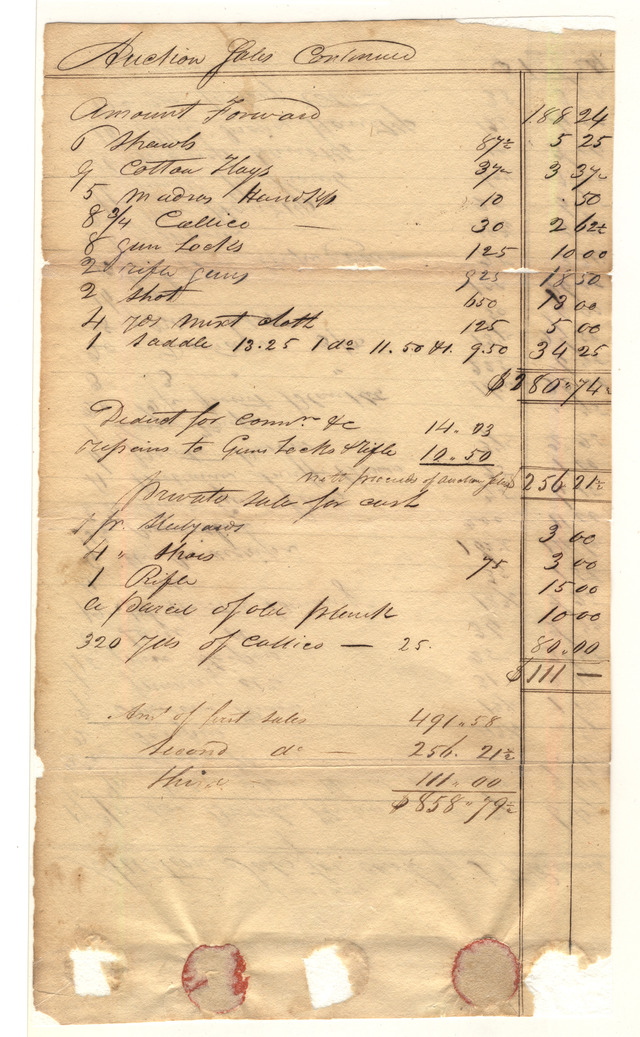 Auction Sales Continued
Amount Forward 188 24
6 Shawls 87½ 5 25
9 Cotton Flags 37½ 3 37½
5 madras Handkfs 10 . 50
8 3/4 Callico — 30 2 62½
8 gun Locks 125 10 00
2 rifle guns 925 18 50
2 Shot 650 13 00
4 yds mixt cloth 125 5 00
1 Saddle 13.25 1 do 11.50 &1. 9.50 34 25
$280"74½
Deduct for comns. &c 14"03
repairs to Gun Locks & rifle 10"50
nett proceeds of auction sales 256 21½
Private sale for cash
1 pr. Stulyards 3 00
4 " Shois 75 3 00
1 Rifle 15 00
a parcel of old plank 10 00
320 yds of Callico — 25. 80"00
$111 —
Amt of first sales 491"58
Second do — 256. 21½
third 111"00
$858"79½